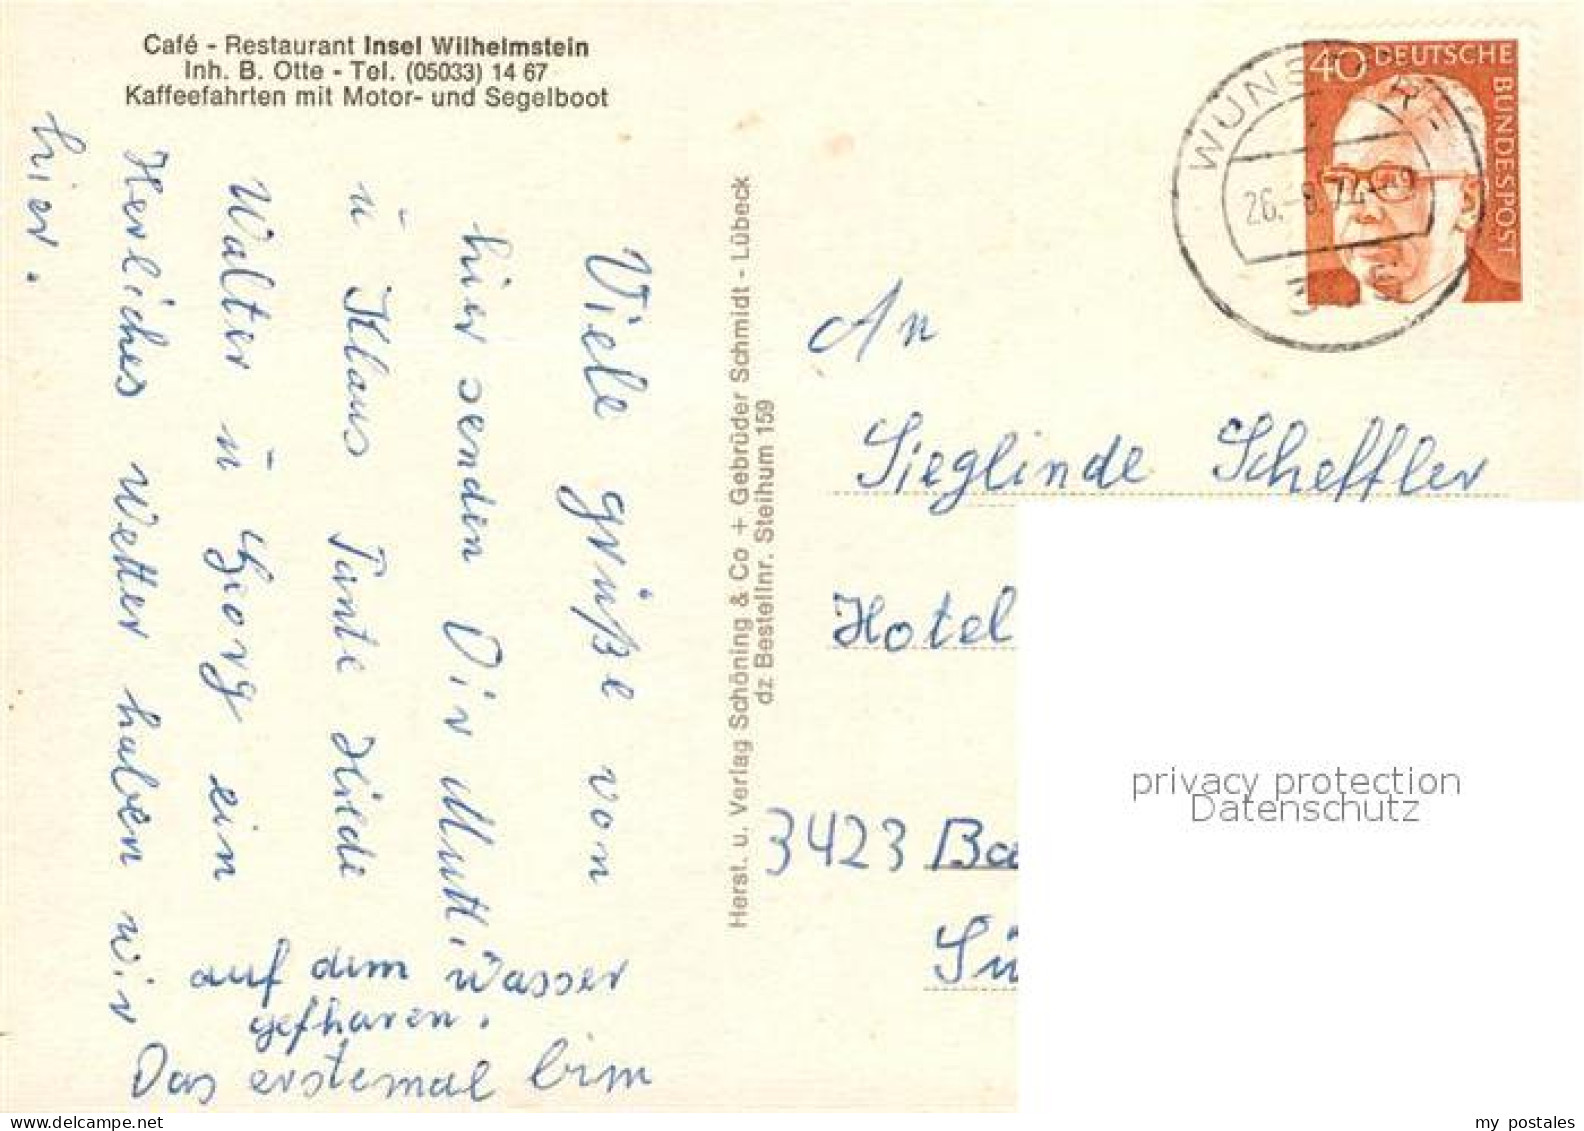 Café - Restaurant Insel Wilhelmstein
Inh. B. Otte - Tel. (05033) 14 67
Kaffeefahrten mit Motor- und Segelboot
Viele grüße von
hier senden Dir Mutti
u Klaus Tante Hiede
Walter u Georg ein
Herliches Wetter haben wir
hier.
auf dem Wasser
gefharen.
Das erstemal bim
Herst. u. Verlag Schöning & Co + Gebrüder Schmidt - Lübeck
dz Bestellnr. Steihum 159
40 DEUTSCHE
BUNDESPOST
WUNSTORF
26.-8.72
An
Sieglinde Scheffler
Hotel
3423 Ba
Sü
privacy protection
Datenschutz
www.delcampe.net
my_postales